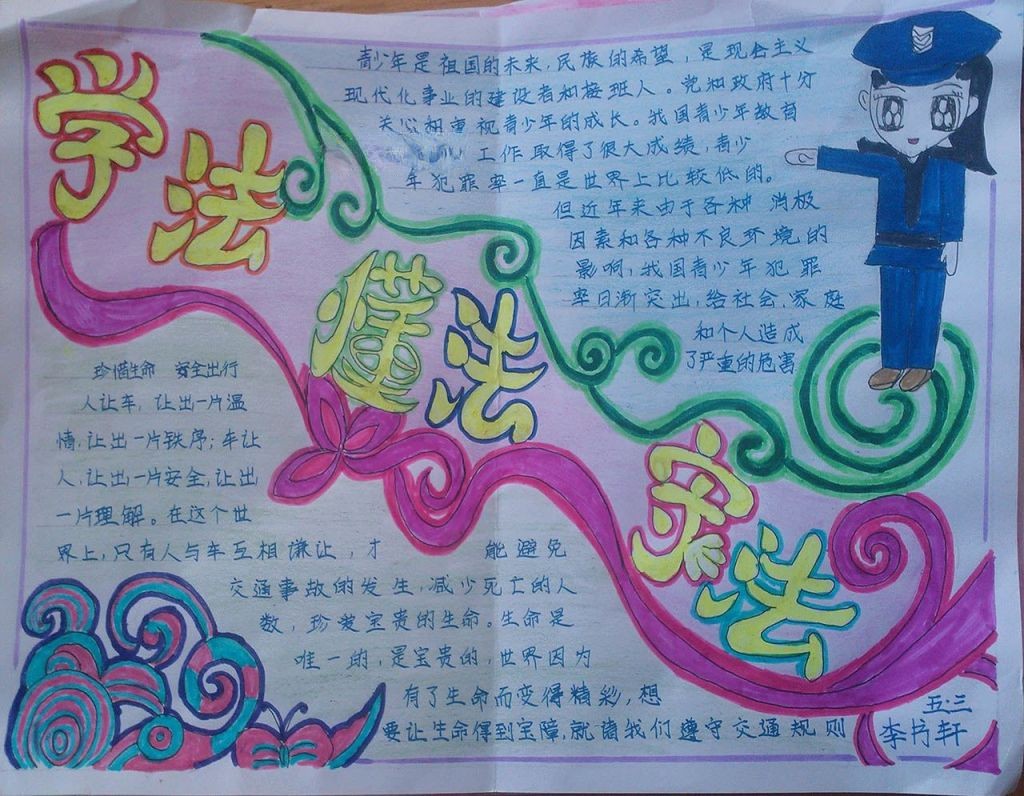 学法
懂法
守法
青少年是祖国的未来,民族的希望,是现会主义
现代化事业的建设者和接班人。党和政府十分
关心和重视青少年的成长。我国青少年教育
工作取得了很大成绩,青少
年犯罪率一直是世界上比较低的。
但近年来由于各种 消极
因素和各种不良环境的
影响,我国青少年犯罪
率日渐突出,给社会、家庭
和个人造成
了严重的危害
珍惜生命 安全出行
人让车,让出一片温
情,让出一片秩序;车让
人,让出一片安全,让出
一片理解。在这个世
界上,只有人与车互相谦让,才 能避免
交通事故的发生,减少死亡的人
数,珍爱宝贵的生命。生命是
唯一的,是宝贵的,世界因为
有了生命而变得精彩,想
要让生命得到宝障,就请我们遵守交通规则
五.三
李书轩